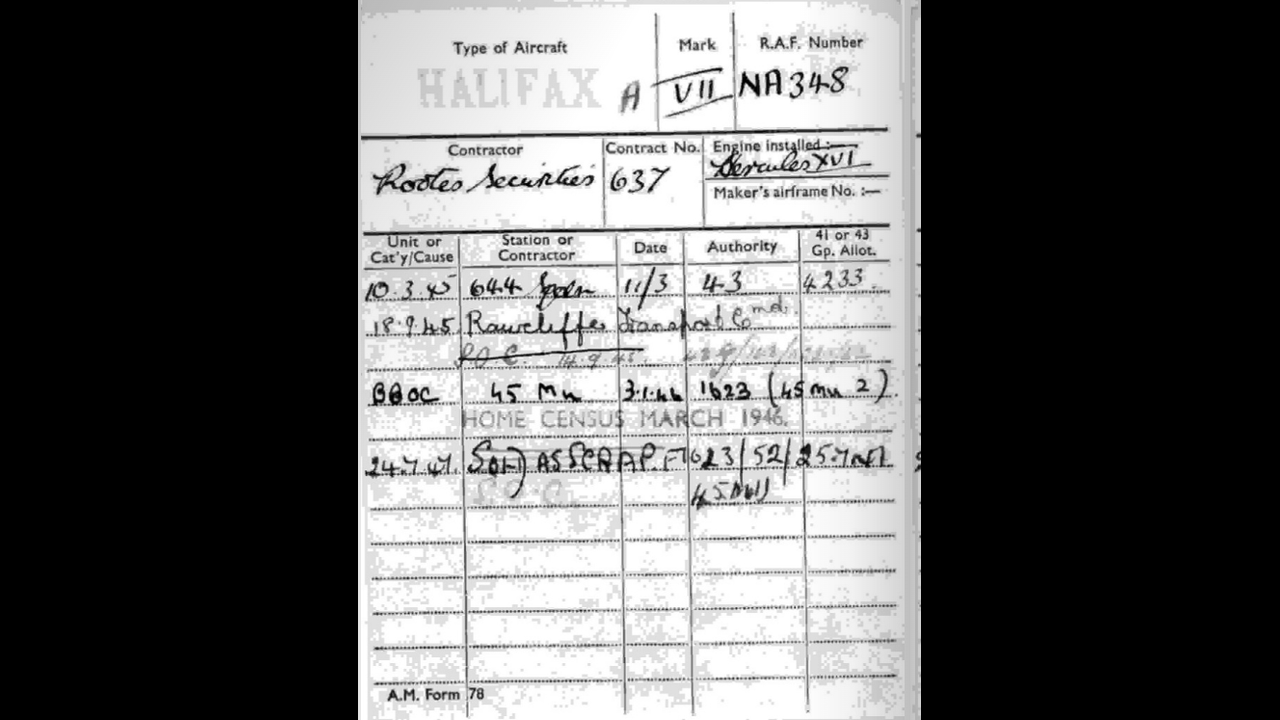 Type of Aircraft Mark R.A.F. Number
HALIFAX A VII NA348
Contractor Contract No. Engine installed :—
Rootes Securities 637 Hercules XVI
Maker's airframe No. :—
Unit or Cat'y/Cause Station or Contractor Date Authority 41 or 43 Gp. Allot.
10.3.45 644 Sqdn 11/3 43 4233
18.9.45 Rawcliffe Transport Cmd.
S.O.C. 14.9.45
45 Mu 3.1.46 1623 (45 Mu 2).
HOME CENSUS MARCH 1946.
24.7.47 Sold AS SCRAP. 623/52/
45 MU
A.M. Form 78